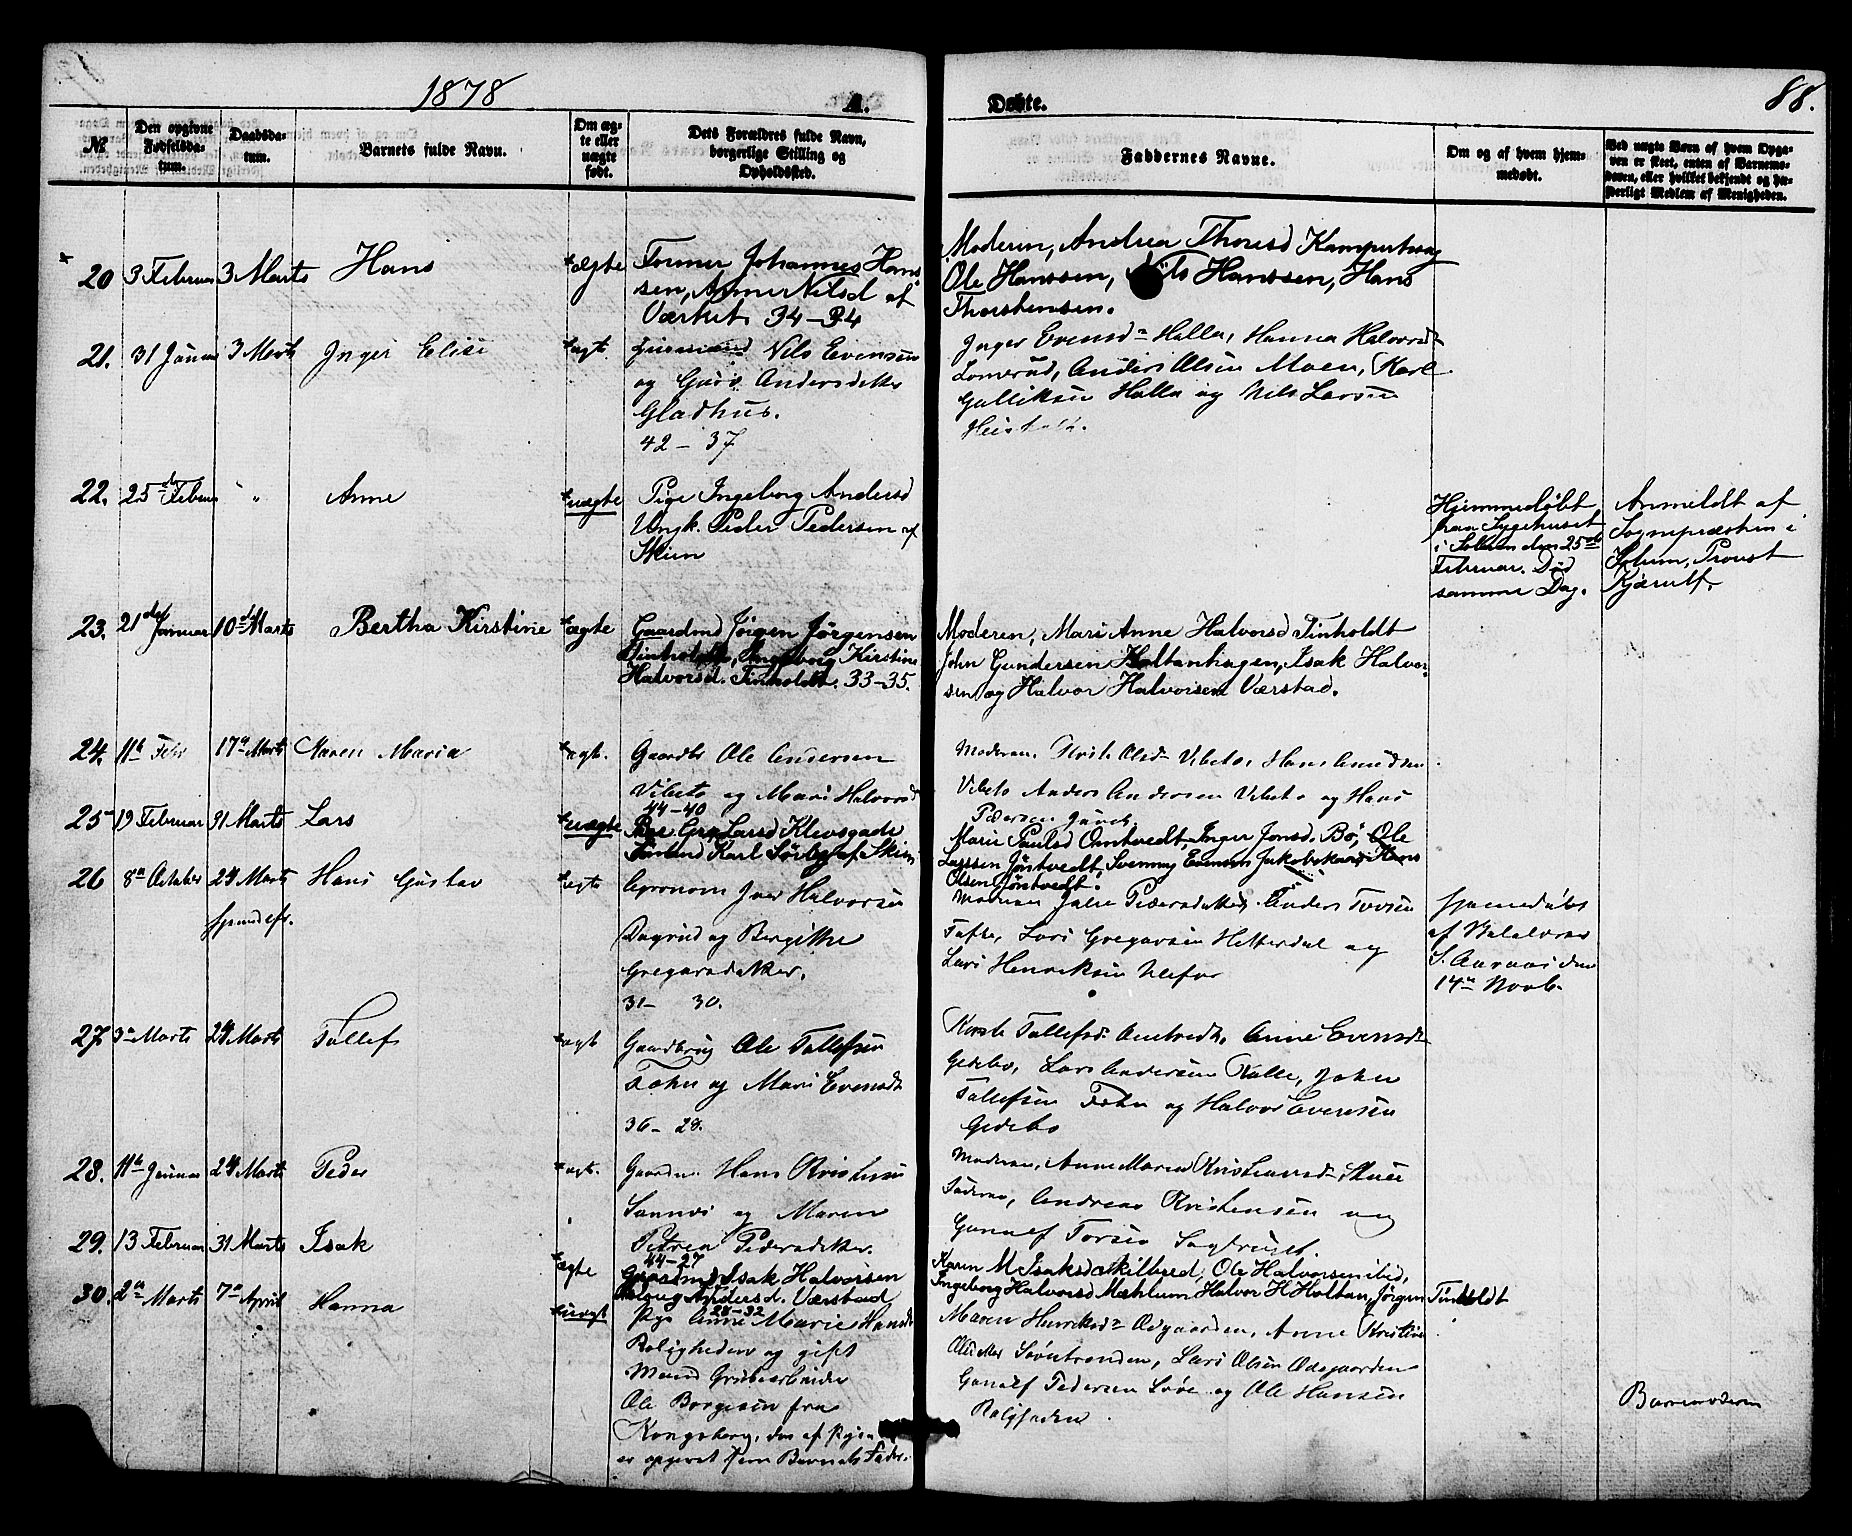 1878
A.
Døbte.
88.
№
Den opgivne Fødselsdatum.
Daabsdatum.
Barnets fulde Navn.
Om ægte eller uægte født.
Dets Forældres fulde Navn, borgerlige Stilling og Opholdssted.
Faddernes Navne.
Om og af hvem hjemmedøbt.
Ved uægte Børn af hvem Opgaven er skeet, enten af Barnemoderen, eller hvilket bekjendt og hæderligt Medlem af Menigheden.
20 3 Februar 3 Marts Hans ægte
Former Johannes Han
sen, Anne Nilsd af
Værket. 34-34
Moderen, Andrea Thorsd Kamperhaug
Ole Hanssen, Hanssen, Hans
Thorstensen.
21. 31 Januar 3 Marts Inger Elise ægt.
Nils Evensen
og Guro Andersdatter
Gladhus.
42 - 37
Inger Evensd Halla, Hanna Halvorsd
Lomerud, Anders Olsen Moen, Karl
Gulliksen Halla og Nils Larsen
22. 25 Februar " Anne uægte
Pige Ingeborg Andersd
Ungk. Peder Pedersen af
Skien
Hjemmedøbt
paa Sygehuset
i Solum den 25de
Februar. Død
samme Dag.
Anmeldt af
Sognepræsten i
Solum, Provst
23. 21de Januar 10de Marts Bertha Kirstine ægte
Gaardmd Jørgen Jørgensen
Tinholdt, Ingeborg Kirstine
Halvorsd. Tinholdt. 33-35.
Moderen, Mari Anne Halvorsd Tinholdt
John Gundersen Holtanhagen, Isak Halvor-
sen og Halvor Halvorsen Værstad.
24. 11te Febr 17de Marts Maren Maria ægt.
Gaardbr Ole Andersen
Vibeto og Mari Halvorsd
44-40
Moderen. Olsd Vibeto, Hans Amundsen
Vibeto Anders Andersen Vibeto og Hans
Pedersen
25 19 Februar 31 Marts Lars uægte
Pige Gro Larsd Klevsgade
Karl Sørby af Skien
Marie Paulsd Omtvedt, Inger Jonsd. Bø, Ole
Larssen Jøntvedt, Svennug Evensen Jakobskaas Hans
Olsen Jøntvedt.
26 8de October 24 Marts Hans Gustav ægte
Iver Halvorsen
Dagrud og Bergitthe
Gregarsdatter.
31- 30.
Moderen Pedersdatter, Anders Tovsen
Tufte, Lars Gregarsen Hitterdal og
Lars Henriksen Ulefos
Hjemmedøbt
af
S. Aaraas den
14de Novb.
27 3de Marts 24 Marts Tollef ægt
Gaardbrug Ole Tollefsen
og Mari Evensdt
36- 28.
Kirsti Tollefsd Omtvedt, Anne Evensdt
Gedebo, Lars Andersen Kalle, John
Tollefsen og Halvor Evensen
Gedebo
28. 11te Januar 24 Marts Peder ægt.
Gaardm. Hans Kristensen
Sannes og Maren
Petrea Pedersdatter.
44-27
Moderen, Anne Maren Kristensd
Andreas Kristensen og
Gunulf Torsen
29. 13 Februar 31 Marts Isak ægte
Gaardmd Isak Halvorsen
Aslaug Andersd. Værstad
28-32
Karen M Isaksd Skilbred, Ole Halvorsen ibid,
Ingeborg Halvorsd Mæhlum Halvor H Holtan, Jørgen Tinholdt
30. 2de Marts 7de April Hanna uægt
Pige Anne Marie Hansd
Roligheden og gift
Mand Grubearbeider
Ole Borgesen fra
Kongsberg, der af Pigen
er opgivet som Barnets Fader.
Maren Henriksd Odegaarden, Anne Kristine
Lars Olsen Odegaarden
Gunulf Pedersen og Ole Hansen
Roligheden.
Barnemoderen